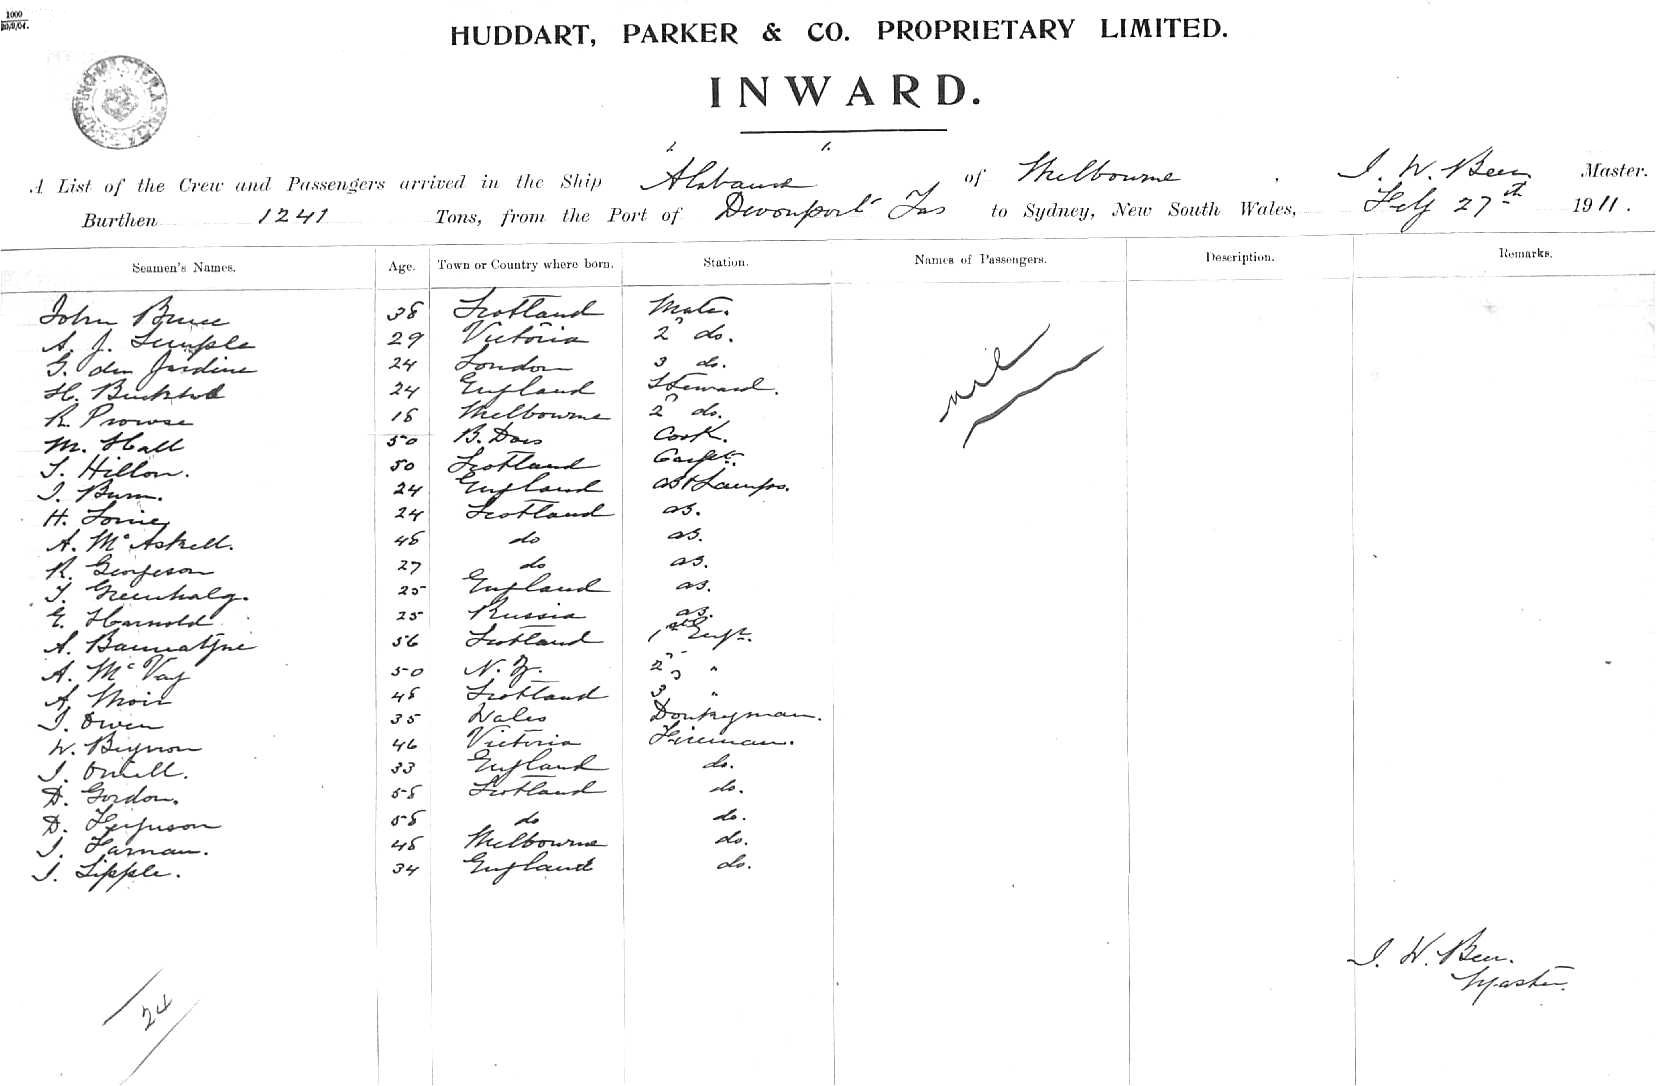 1000
20/9/04.
HUDDART, PARKER & CO. PROPRIETARY LIMITED.
INWARD.
A List of the Crew and Passengers arrived in the Ship of Melbourne J. W. Bee Master.
Burthen 1241 Tons, from the Port of Devonport Tas to Sydney, New South Wales, Feby 27th 1911.
Seamen's Names. Age. Town or Country where born. Station. Names of Passengers. Description. Remarks.
John Bruce 38 Scotland Mate.
A. J. Temple 29 Victoria 2" do.
G. den Jardine 24 London 3 do.
H. 24 England Steward.
R. Prowse 18 Melbourne 2" do.
M. Hall 50 B. Cook.
T. Hillon. 50 Scotland Carptr.
J. Burn. 24 England AB & Lamps.
H. 24 Scotland AB.
A. McAskell. 48 do AB.
R. Georgeson 27 do AB.
T. Greenhalg. 25 England AB.
E. Harnold 25 Russia AB.
A. Bannatyne 56 Scotland 1st Engr.
A. McVay 50 N. Z. 2" "
A. Moir 48 Scotland 3 "
J. Owen 35 Wales Donkeyman.
W. Beynon 46 Victoria Fireman.
J. Oneill. 33 England do.
D. Gordon. 58 Scotland do.
D. Ferguson 58 do do.
J. Farnan. 48 Melbourne do.
J. Tipple. 34 England do.
nil
J. W. Bee.
Master.
24